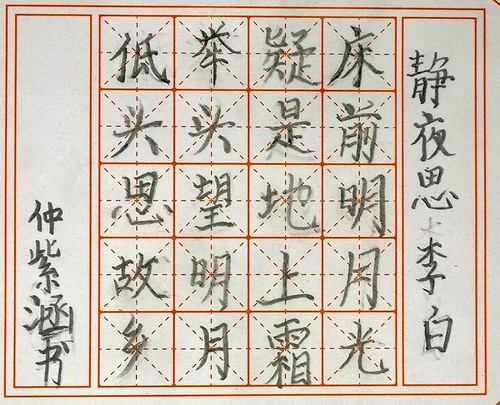 静夜思 李白
床前明月光
疑是地上霜
举头望明月
低头思故乡
仲紫涵书